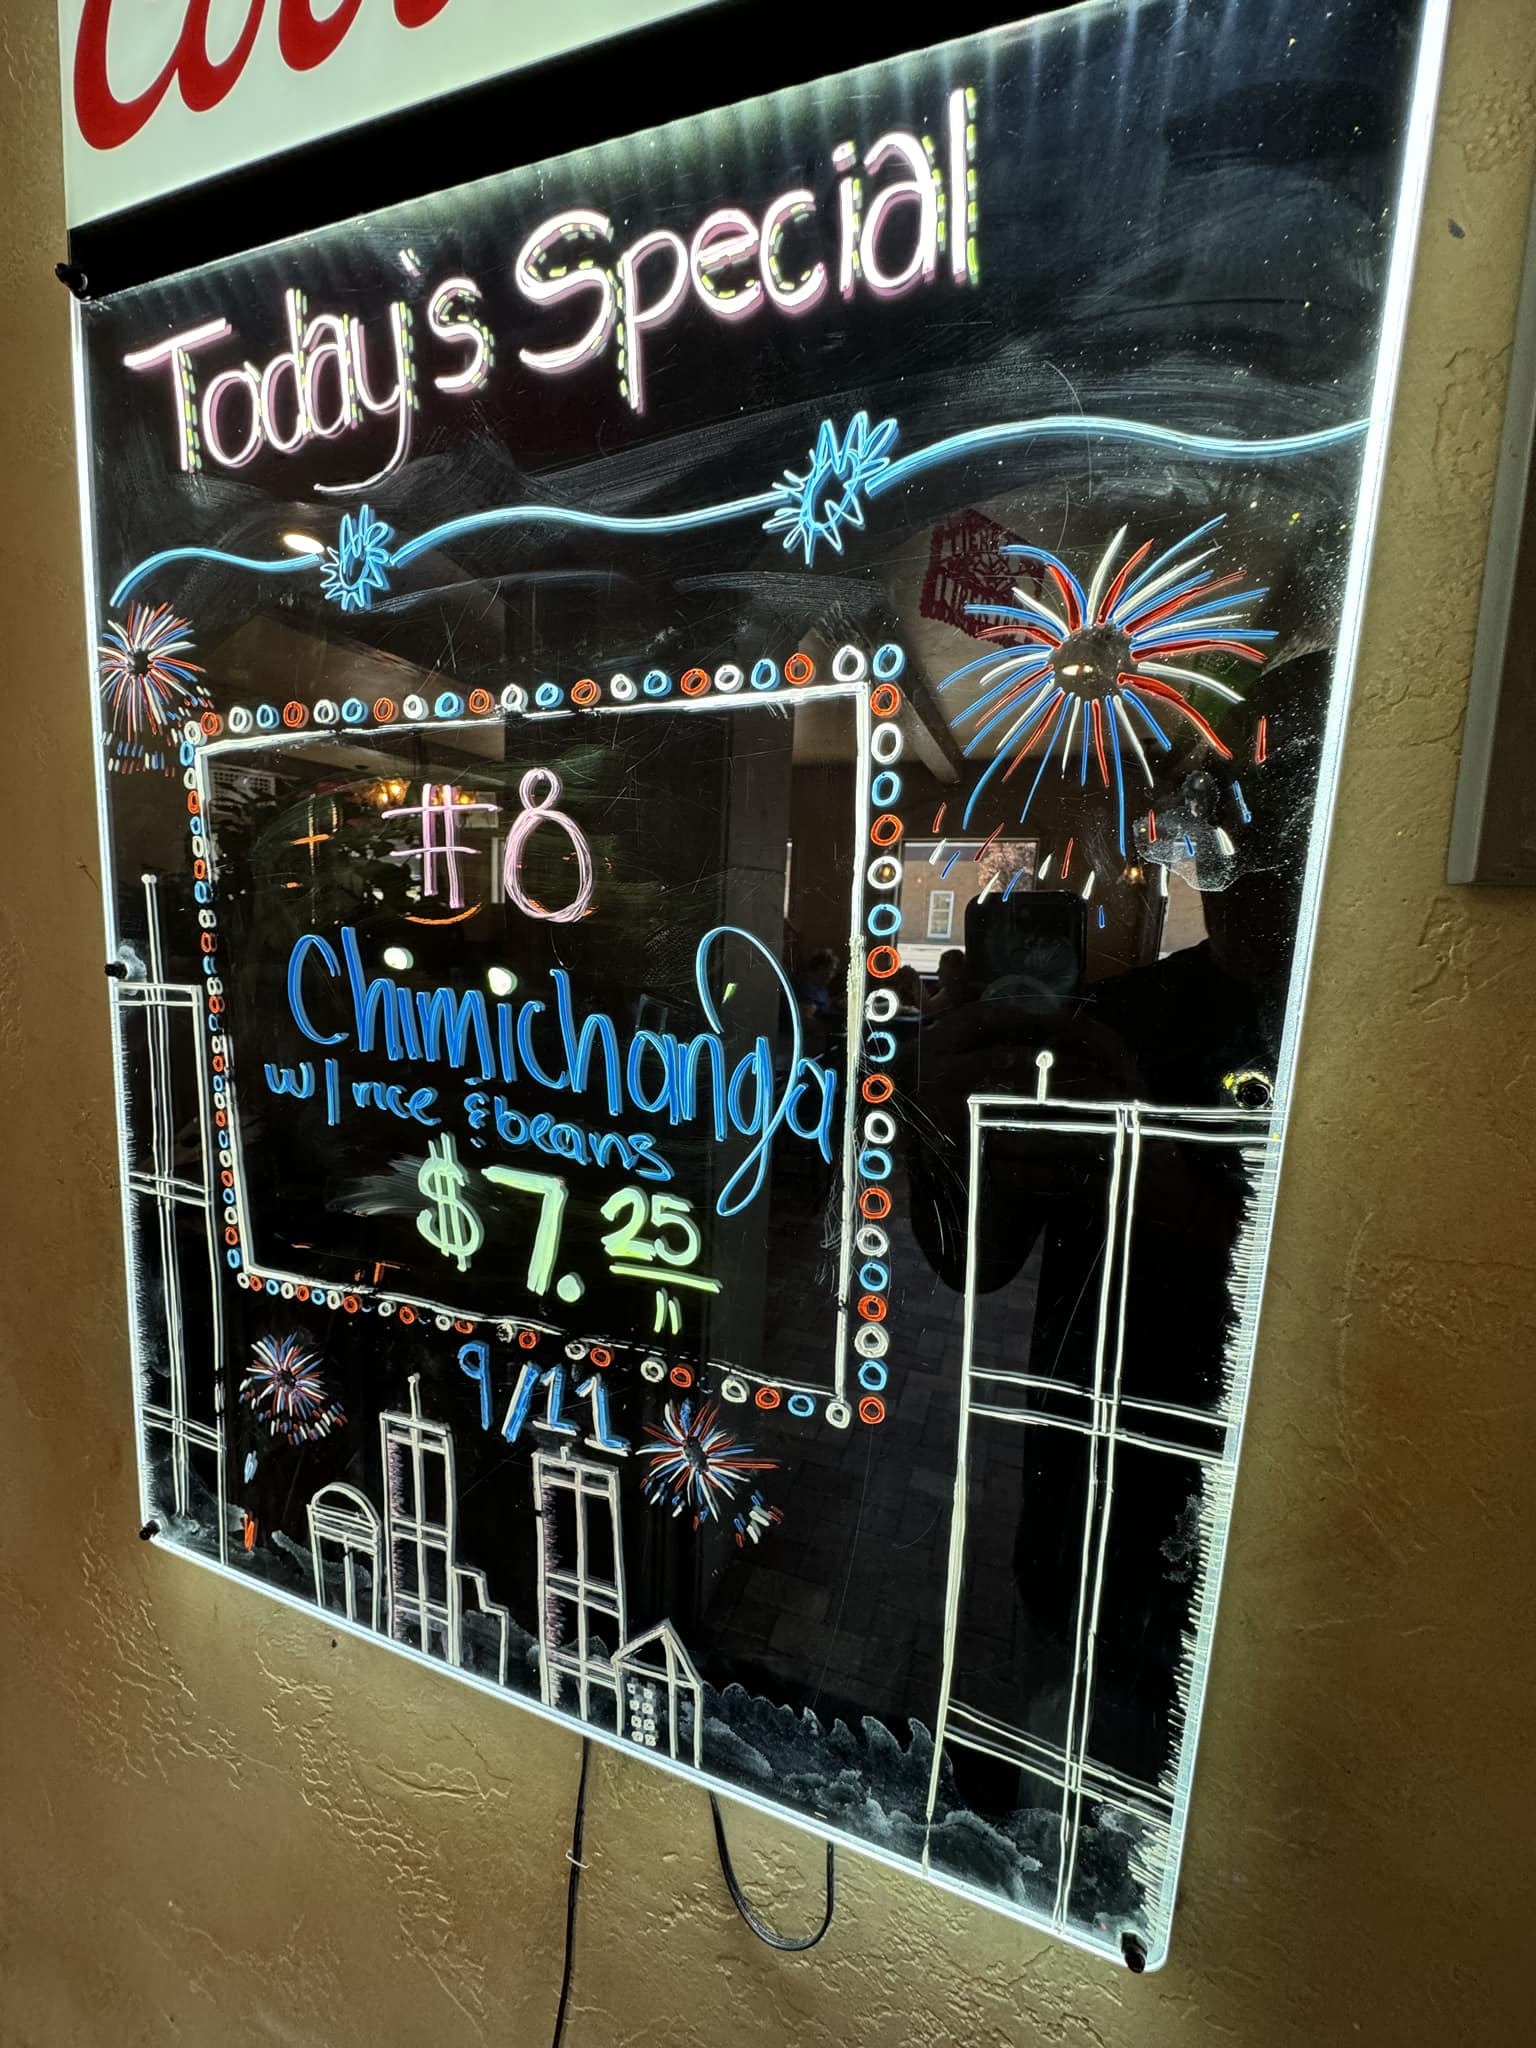 Today's Special
#8
Chimichanga
w/ rice & beans
$7.25
9/11